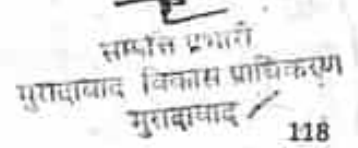 सम्पत्ति प्रभारी
मुरादाबाद विकास प्राधिकरण
मुरादाबाद
118